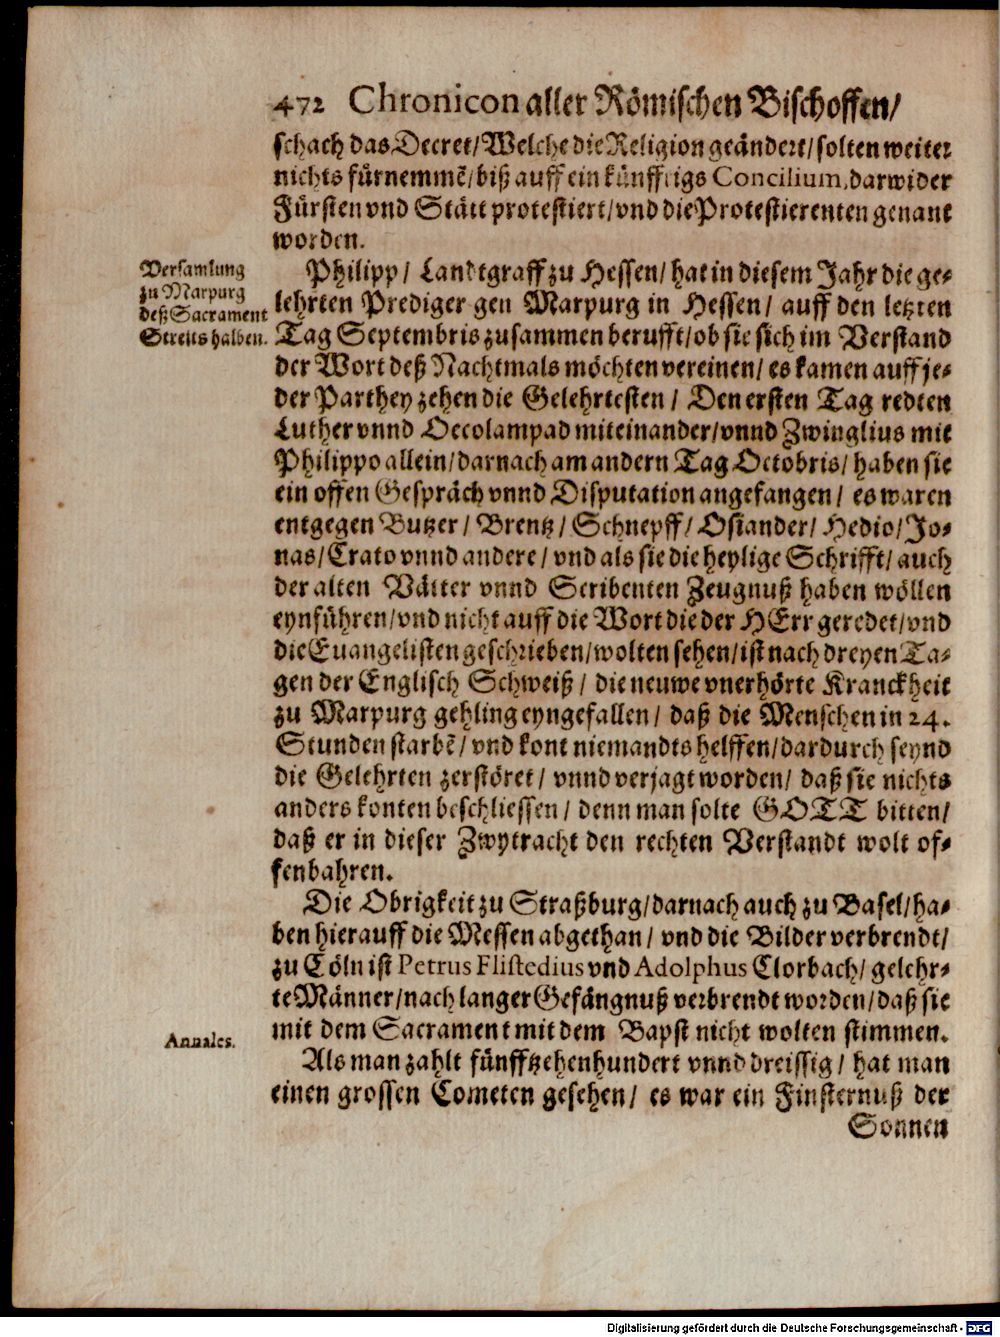 472 Chronicon aller Römischen Bischoffen/
schach das Decret/Welche die Religion geändert/solten weiter
nichts fürnemmē/biß auff ein künfftigs Concilium, darwider
Fürsten vnd Stätt protestiert/vnd die Protestierenten genant
worden.
Versamlung
zu Marpurg
deß Sacrament
Streits halben.
Philipp/ Landtgraff zu Hessen/ hat in diesem Jahr die ge-
lehrten Prediger gen Marpurg in Hessen/ auff den letzten
Tag Septembris zusammen berufft/ob sie sich im Verstand
der Wort deß Nachtmals möchten vereinen/ es kamen auff je-
der Parthey zehen die Gelehrtesten/ Den ersten Tag redten
Luther vnnd Oecolampad miteinander/vnnd Zwinglius mit
Philippo allein/darnach am andern Tag Octobris/ haben sie
ein offen Gespräch vnnd Disputation angefangen/ es waren
entgegen Butzer/ Brentz/ Schnepff/ Osiander/ Hedio/ Jo-
nas/ Crato vnnd andere/ vnd als sie die heylige Schrifft/ auch
der alten Vätter vnnd Scribenten Zeugnuß haben wöllen
eynführen/vnd nicht auff die Wort die der HErr geredet/vnd
die Euangelisten geschrieben/wolten sehen/ist nach dreyen Ta-
gen der Englisch Schweiß/ die neuwe vnerhörte Kranckheit
zu Marpurg gehling eyngefallen/ daß die Menschen in 24.
Stunden starbē/ vnd kont niemandts helffen/dardurch seynd
die Gelehrten zerstöret/ vnnd verjagt worden/ daß sie nichts
anders konten beschliessen/ denn man solte GOTT bitten/
daß er in dieser Zwytracht den rechten Verstandt wolt of-
fenbahren.
Die Obrigkeit zu Straßburg/darnach auch zu Basel/ha-
ben hierauff die Messen abgethan/ vnd die Bilder verbrendt/
zu Cöln ist Petrus Flistedius vnd Adolphus Clorbach/ gelehr-
te Männer/nach langer Gefängnuß verbrendt worden/daß sie
mit dem Sacrament mit dem Bapst nicht wolten stimmen.
Annales.
Als man zahlt fünfftzehenhundert vnnd dreissig/ hat man
einen grossen Cometen gesehen/ es war ein Finsternuß der
Sonnen
Digitalisierung gefördert durch die Deutsche Forschungsgemeinschaft - DFG